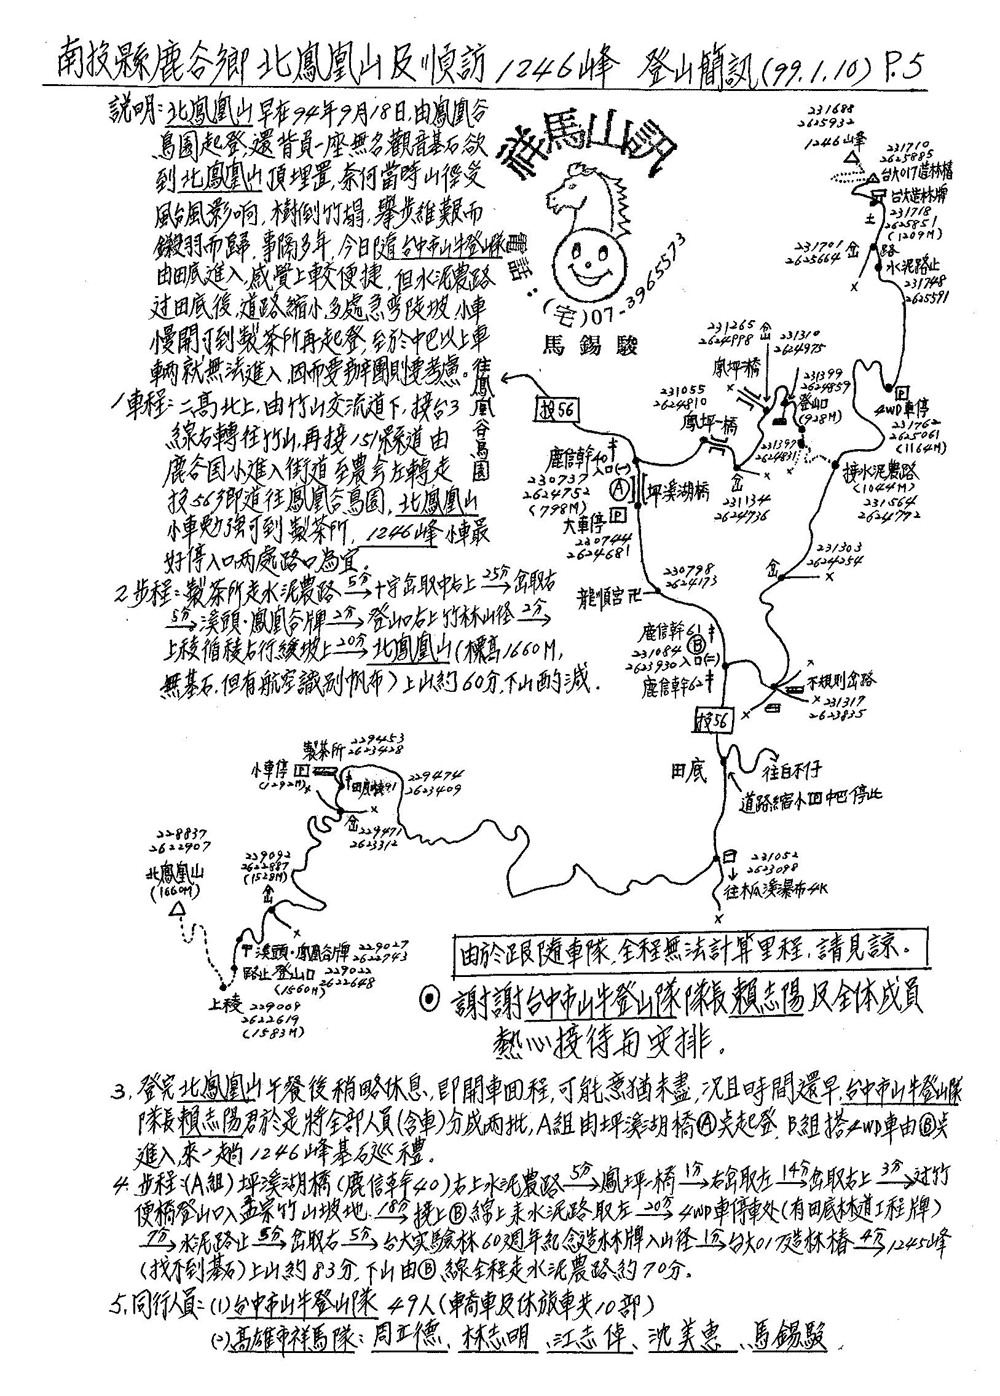 南投縣鹿谷鄉北鳳凰山及順訪1246峰 登山簡訊(99.1.10) P.5
說明:北鳳凰山早在94年9月18日,由鳳凰谷
鳥園起登,還背負一座無名觀音基石欲
到北鳳凰山頂埋置,奈何當時山徑受
風台風影响,樹倒竹塌,舉步維艱而
鎩羽而歸,事隔多年,今日隨台中市山牛登山隊
由田底進入,感覺上較便捷,但水泥農路
过田底後,道路縮小,多處急彎陡坡,小車
慢開可到製茶所再起登,至於中巴以上車
輌就無法進入,因而要辦團則要考慮。
1.車程:二高北上,由竹山交流道下,接台3
線右轉往竹山,再接151縣道由
鹿谷国小進入街道至農会左轉走
投56鄉道往鳳凰谷鳥園,北鳳凰山
小車勉強可到製茶所,1246峰小車最
好停入口两處路口為宜。
2.步程:製茶所走水泥農路 5分→ 十字岔取中右上 25分→ 岔取右
5分→ 溪頭·鳳凰谷牌 2分→ 登山口右上竹林山径 2分→
上稜循稜右行緩坡上 20分→ 北鳳凰山(標高1660M,
無基石,但有航空識別帆布)上山約60分,下山酌減.
祥馬山訊
電話:(宅)07-3965573
馬錫駿
231688
2625932
1246山峰
231710
2625885
台大017造林樁
台大造林牌
231718
2625851
(1209M)
土
路
231701
2625664
岔
水泥路止
231748
2625591
231265
2624998
岔
231310
2624975
鳳坪=橋
231399
2624859
登山口
(928M)
231055
2624810
鳳坪一橋
4WD車停
P
231762
2625061
(1164M)
往鳳凰谷鳥園
投56
鹿信幹40
入口(一)
230737
2624752
(798M)
A
坪溪湖橋
大車停
P
230744
2624681
岔
231134
2624736
231397
2624831
接水泥農路
(1044M)
231564
2624772
岔
231303
2624254
230798
2624173
龍順宮卍
鹿信幹61
231084
2623930入口(二)
B
鹿信幹62
不規則岔路
231317
2623835
投56
田底
往自不仔
道路縮小回中巴停此
231052
2623098
往木瓜溪瀑布4K
製茶所
229453
2623428
小車停
P
(1292M)
田底幹91
229474
2623409
岔
229471
2623312
228837
2622907
北鳳凰山
(1660M)
229092
2622887
(1529M)
岔
溪頭·鳳凰谷牌
229027
2622743
路止登山口
229022
2622648
(1560M)
上稜
229009
2622619
(1583M)
由於跟隨車隊,全程無法計算里程,請見諒。
◉ 謝謝台中市山牛登山隊隊長賴志陽及全体成員
熱心接待与安排.
3.登完北鳳凰山午餐後稍略休息,即開車回程,可能意猶未盡,况且時間還早,台中市山牛登山隊
隊長賴志陽君於是將全部人員(含車)分成两批,A組由坪溪湖橋Ⓐ点起登,B組搭4WD車由Ⓑ点
進入,來一趟1246峰基石巡禮.
4.步程:(A組)坪溪湖橋(鹿信幹40)右上水泥農路 5分→ 鳳坪=橋 1分→ 右岔取左 14分→ 岔取右上 3分→ 过竹
便橋登山口入孟宗竹山坡地 18分→ 接上Ⓑ線上來水泥路取左 20分→ 4WD車停車处(有田底林道工程牌)
7分→ 水泥路止 5分→ 岔取右 5分→ 台大实驗林60週年紀念造林牌入山径 1分→ 台大017造林樁 4分→ 1245山峰
(找不到基石)上山約83分,下山由Ⓑ線全程走水泥農路約70分。
5.同行人員:(1)台中市山牛登山隊 49人(車轎車及休旅車共10部)
(2)高雄市祥馬隊:周正德、林志明、江志倬、沈美惠、馬錫駿.